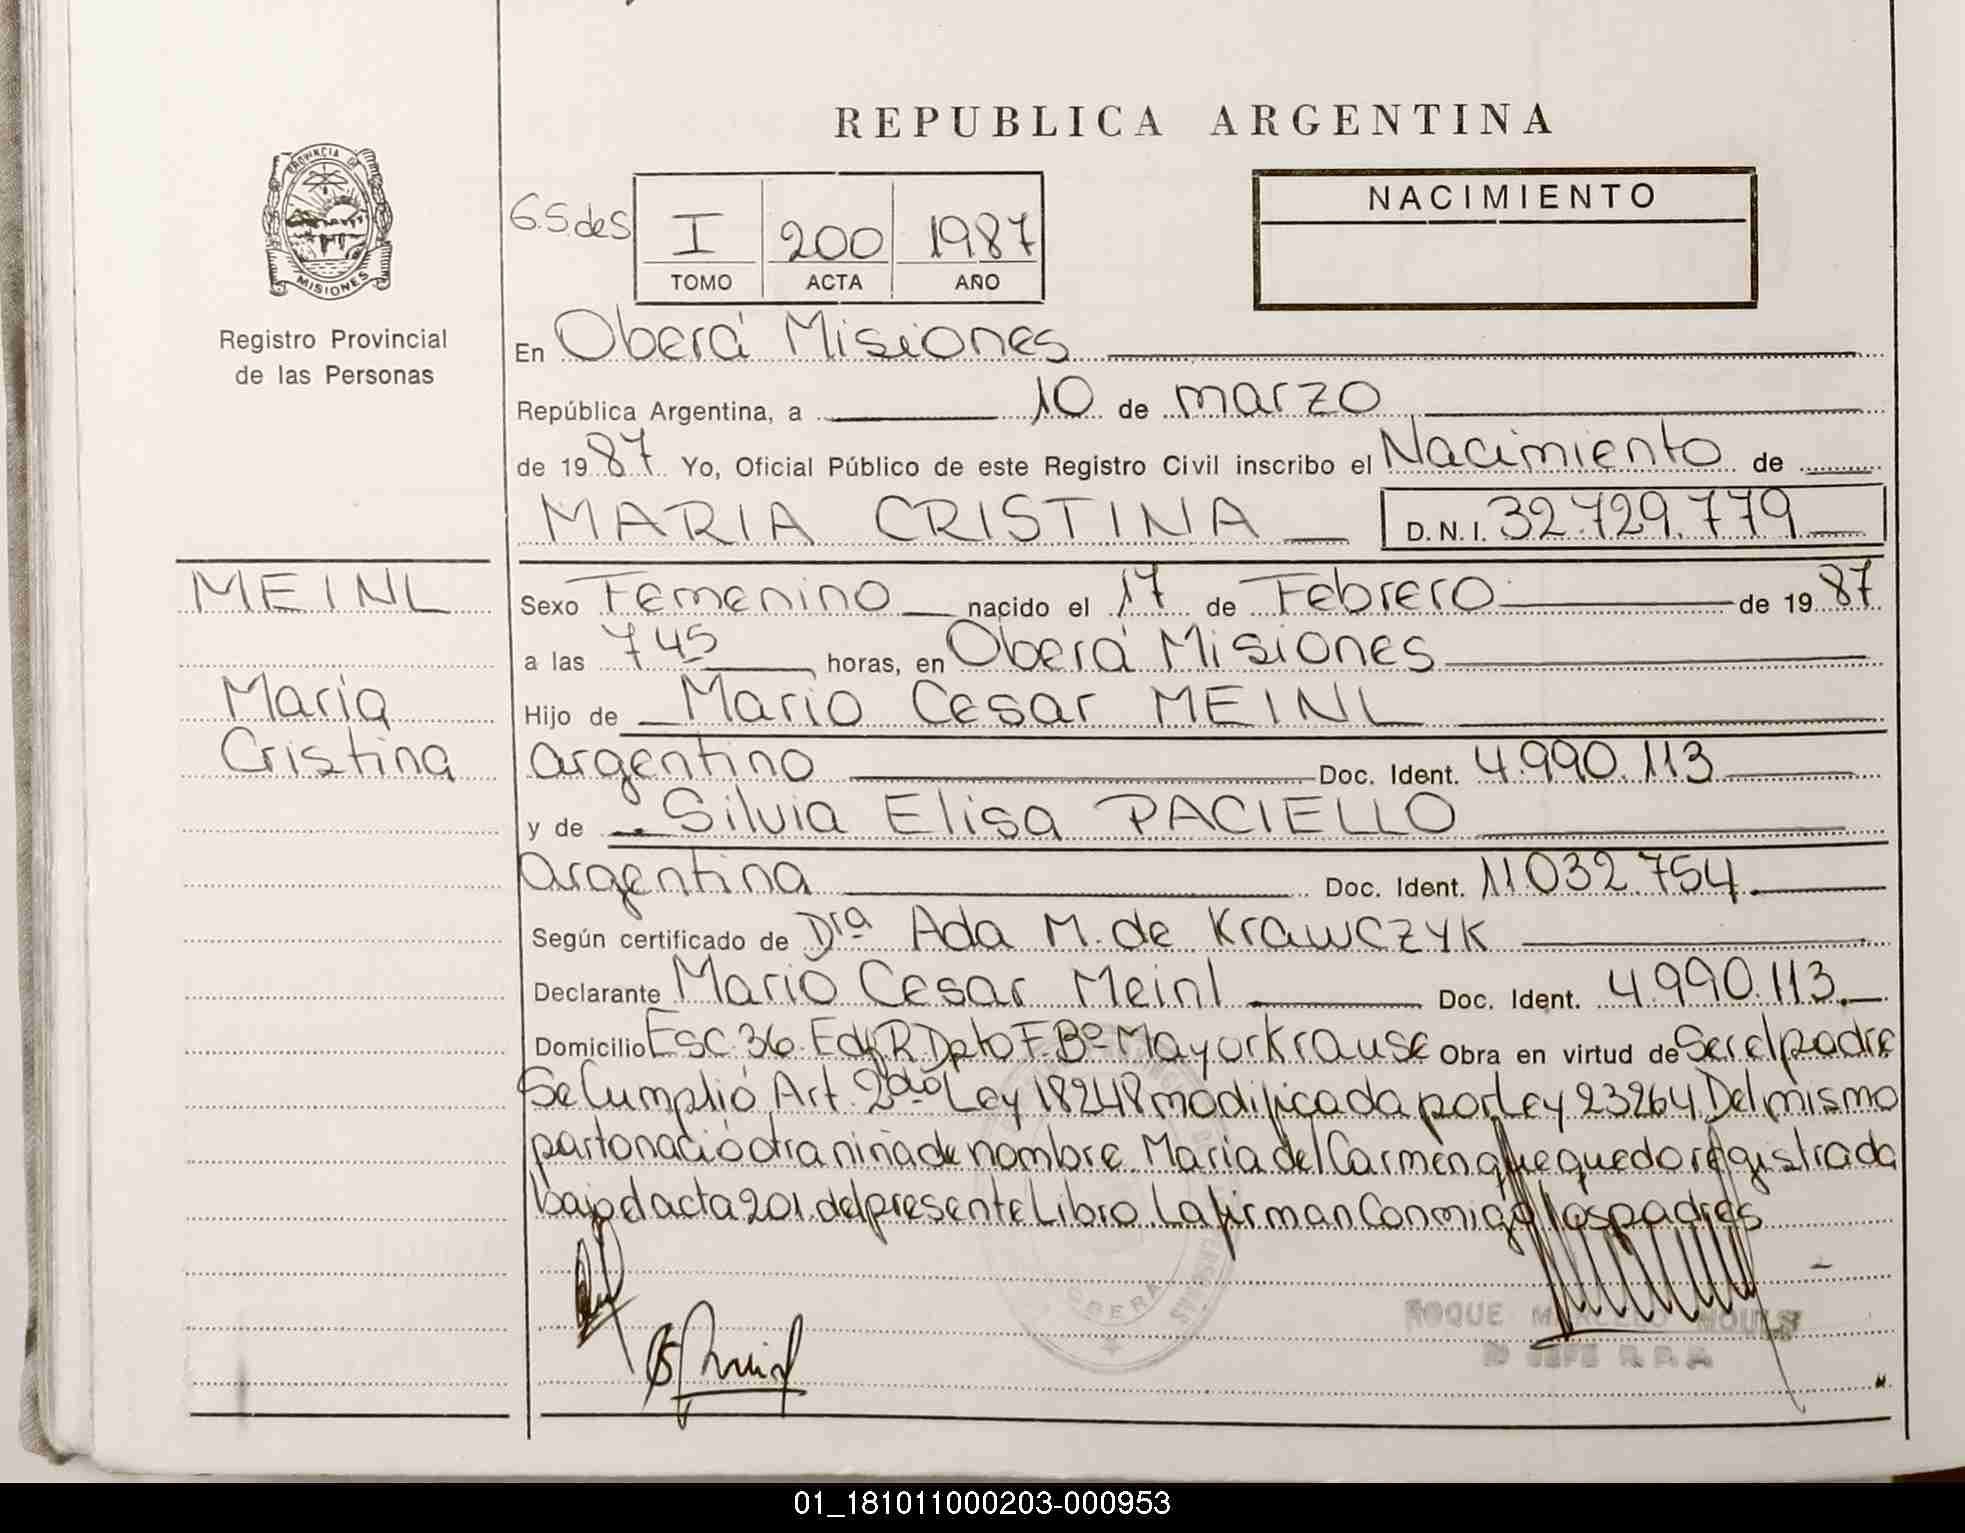 REPUBLICA ARGENTINA
PROVINCIA DE
MISIONES
Registro Provincial
de las Personas
I 200 1987
TOMO ACTA AÑO
NACIMIENTO
En Oberá Misiones
República Argentina, a 10 de marzo
de 1987 Yo, Oficial Público de este Registro Civil inscribo el Nacimiento de
MARIA CRISTINA D.N.I. 32.729.779
MEINL
Maria
Cristina
Sexo Femenino nacido el 17 de Febrero de 1987
a las 745 horas, en Oberá Misiones
Hijo de Mario Cesar MEINL
argentino Doc. Ident. 4.990.113
y de Silvia Elisa PACIELLO
argentina Doc. Ident. 11032.754
Según certificado de Dra Ada M. de Krawczyk
Declarante Mario Cesar Meinl Doc. Ident. 4.990.113
Domicilio Esc 36 Edf R Dpto F Bº Mayor Krause Obra en virtud de Ser el padre
Se Cumplió Art 2do Ley 18248 modificada por Ley 23264 Del mismo
parto nació otra niña de nombre Maria del Carmen que quedo registrada
bajo el acta 201 del presente Libro. La firman Conmigo los padres
OBERA
ROQUE
JEFE R.P.P.
01_181011000203-000953